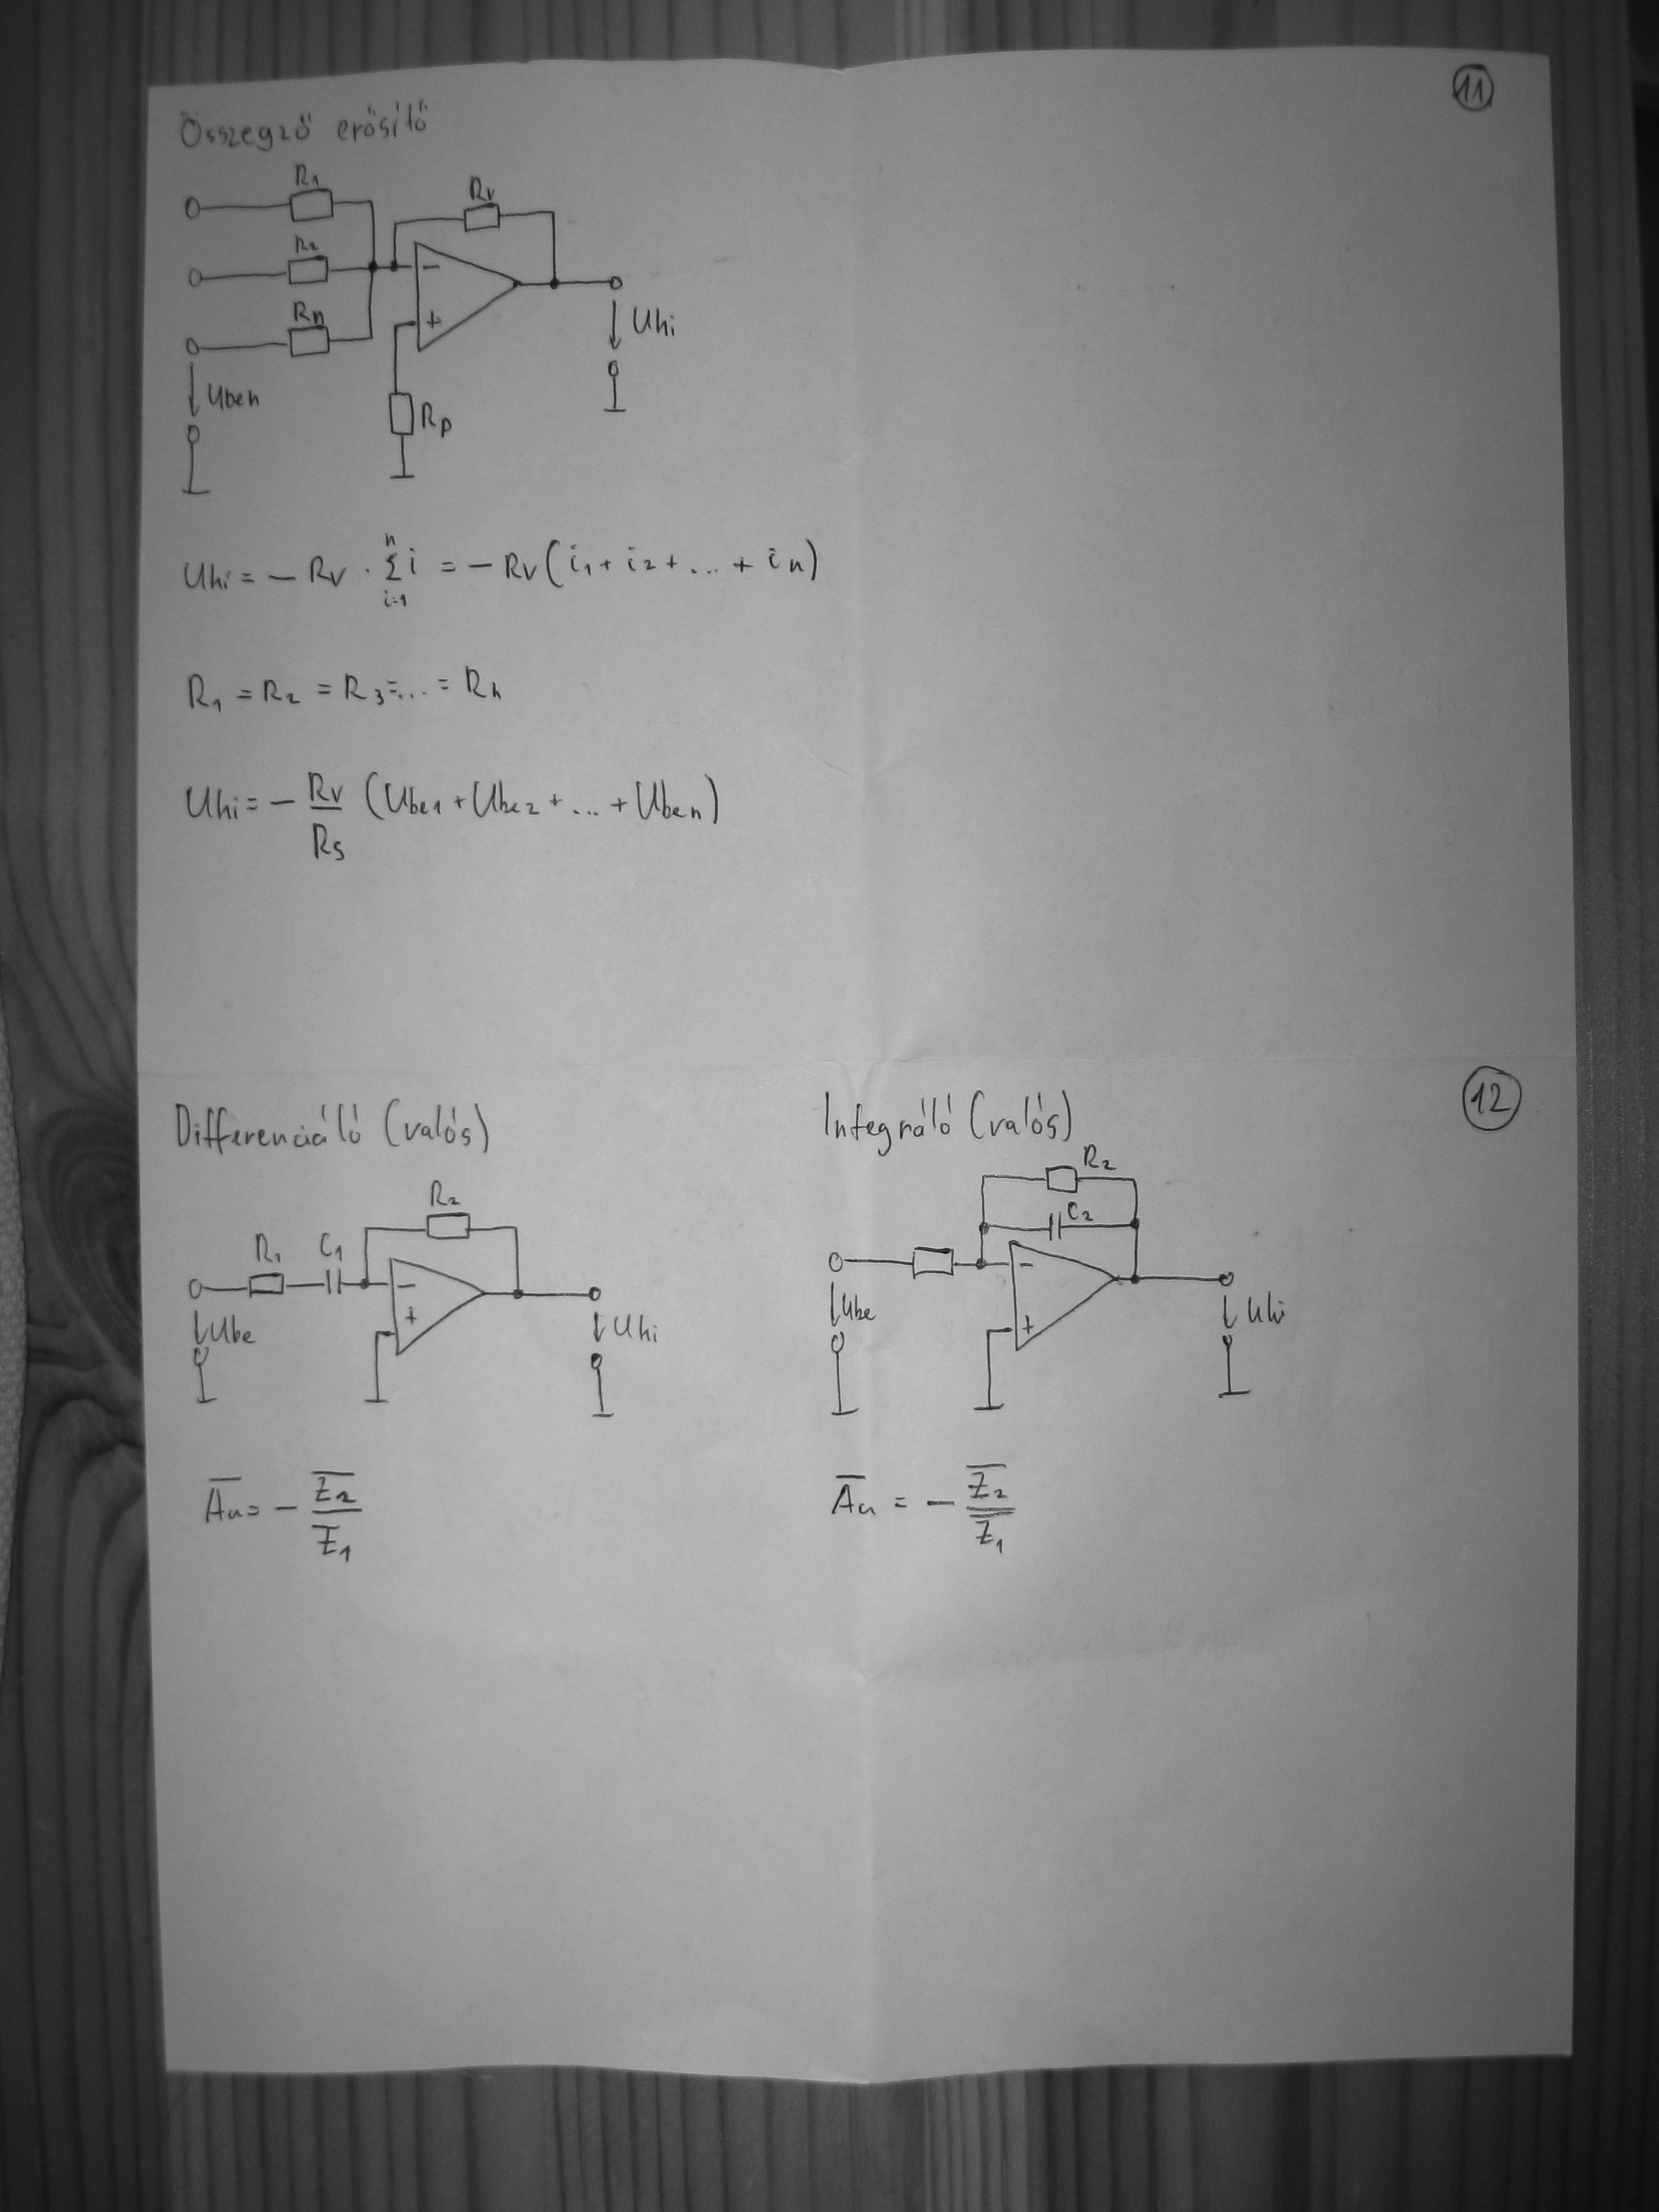 11
Összegző erősítő
R1
Rv
R2
Rn
-
+
Uben
Rp
Uki
Uki = - Rv · n Σ i=1 i = - Rv (i1 + i2 + ... + in)
R1 = R2 = R3 = ... = Rn
Uki = - Rv/Rs (Ube1 + Ube2 + ... + Uben)
12
Differenciáló (valós)
R2
R1 C1
-
+
Ube
Uki
Au = - Z2/Z1
Integráló (valós)
R2
C2
-
+
Ube
Uki
Au = - Z2/Z1